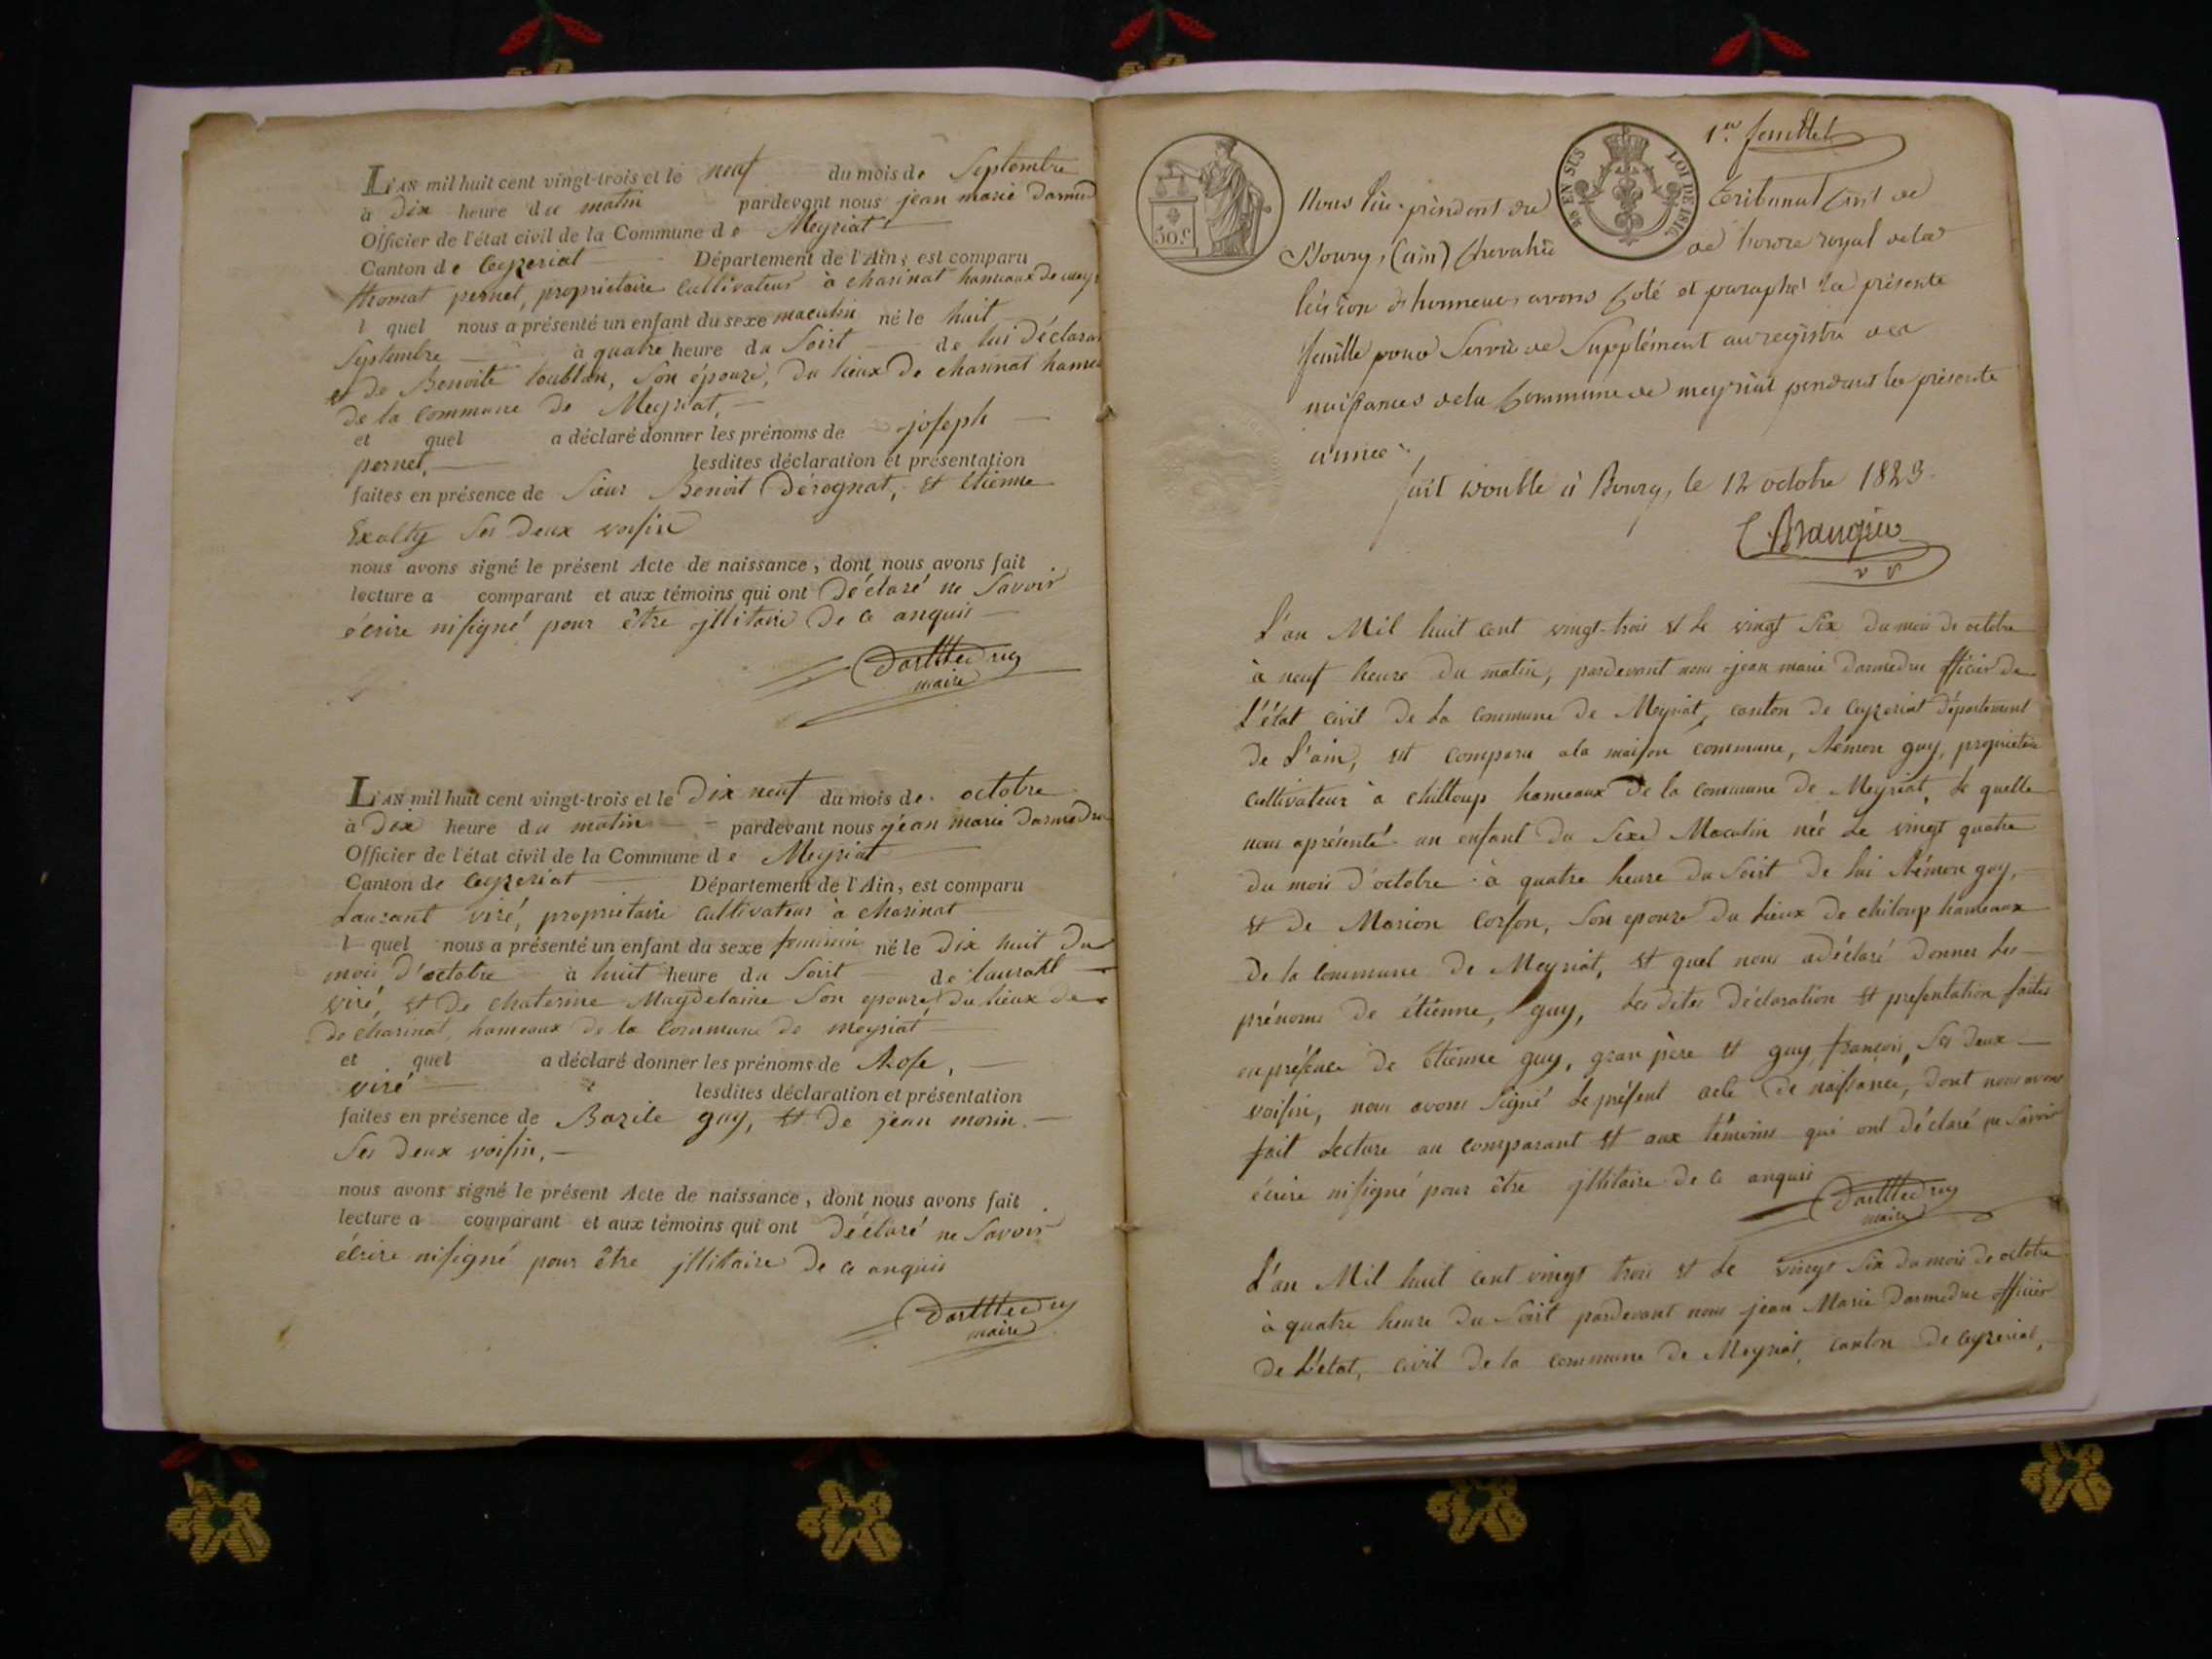 L'AN mil huit cent vingt-trois et le neuf du mois de Septembre
à dix heure du matin pardevant nous jean marie darmed
Officier de l'état civil de la Commune de Meyriat
Canton de Ceyzeriat Département de l'Ain, est comparu
thomat pernet, proprietaire cultivateur à charinat hameaux de
l quel nous a présenté un enfant du sexe maculin né le huit
Septembre à quatre heure du Soirt de lui déclara
et de Benoite loublan, Son épouze, du lieux de charinat hame
de la commune de Meyriat,
et quel a déclaré donner les prénoms de joseph
pernet, lesdites déclaration et présentation
faites en présence de Sieur Benoit Derognat, et Etienne
Exalty Ses deux voisin
nous avons signé le présent Acte de naissance, dont nous avons fait
lecture a comparant et aux témoins qui ont Déclaré ne Savoir
écrire nisigné pour être jllitaire De ce anquis
maire
L'AN mil huit cent vingt-trois et le Dix neuf du mois de octobre
à Dix heure du matin pardevant nous jean marie darmedru
Officier de l'état civil de la Commune de Meyriat
Canton de Ceyzeriat Département de l'Ain, est comparu
Laurant viré, proprietaire cultivateur à charinat
l quel nous a présenté un enfant du sexe feminin né le Dix huit Du
mois D'octobre à huit heure du Soirt de laurant
viré, et De chaterine Magdelaine Son epouze, du lieux de
de charinat, hameaux de la commune de meyriat
et quel a déclaré donner les prénoms de Rose,
viré lesdites déclaration et présentation
faites en présence de Bazile guy, et de jean morin.
Ses deux voisin,
nous avons signé le présent Acte de naissance, dont nous avons fait
lecture a comparant et aux témoins qui ont Déclaré ne Savoir
écrire nisigné pour être jllitaire De ce anquis
maire
1er feuillet
50 c
EN SUS LOI DE 1816
Nous Vice-président du tribunal Civil de
Bourg, (ain) Chevalier de l'ordre royal de la
légion d'honneur, avons Coté et paraphé la présente
feuille pour Servir de Supplément au registre des
naissances de la Commune de meyriat pendant la présente
année.
fait double à Bourg, le 12 octobre 1823.
L'an Mil huit cent vingt-trois et le vingt Six du mois de octobre
à neuf heure du matin, pardevant nous jean marie darmedru officier de
L'état civil de la commune de Meyriat, canton de Ceyzeriat département
de l'ain, est comparu a la maison commune, Rémon guy, proprietaire
cultivateur à chiltoup hameaux De la commune de Meyriat, Le quelle
nous aprésenté un enfant du Sexe Maculin née Le vingt quatre
du mois d'octobre à quatre heure du Soirt de lui Rémon guy,
et de Marion Corson, Son epouze du lieux de chiloup hameaux
De la Commune de Meyriat, et quel nous adéclaré donner les
prénoms de étienne, guy, Les dites déclaration et presentation faites
en présence de Etienne guy, gran père et guy françois, Ses deux
voisin, nous avons Signé Le présent acte de naissance, dont nous avons
fait Lecture au comparant et aux témoins qui ont déclaré ne Savoir
écrire nisigné pour être jllitaire de ce anquis
maire
L'an Mil huit cent vingt trois et Le vingt Six du mois de octobre
à quatre heure du Soirt pardevant nous jean Marie darmedru officier
de L'état, civil de la commune de Meyriat, canton de Ceyzeriat,